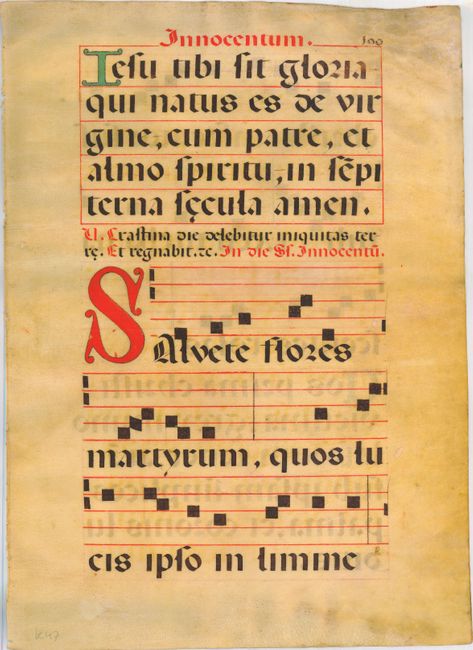 Innocentum. 199
Iesu tibi sit gloria
qui natus es de vir
gine, cum patre, et
almo spiritu, in sẽpi
terna sęcula amen.
V. Crastina die delebitur iniquitas ter-
rę. Et regnabit. ⁊c. In die SS. Innocentũ.
SAlvete flores
martyrum, quos lu
cis ipso in limine
K47